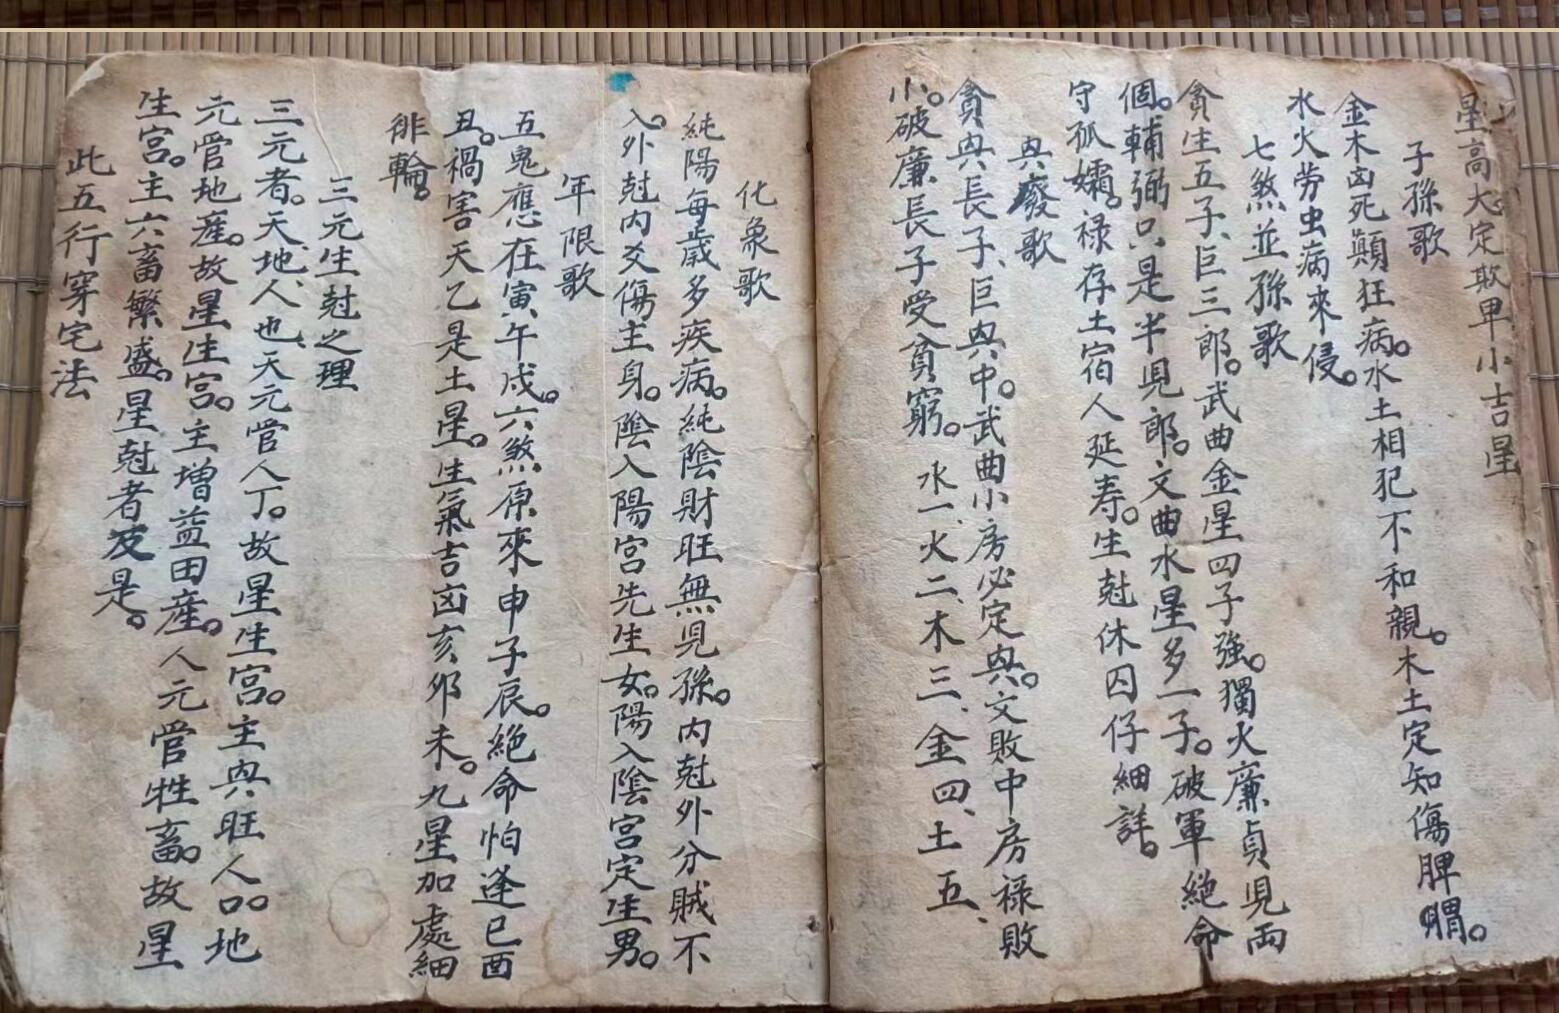 星高大定欺卑小吉星
子孫歌
金木凶死顛狂病。水土相犯不和親。木土定知傷脾胃。
水火劳虫病來侵。
七煞並孫歌
貪生五子、巨三郎。武曲金星四子強。獨火廉貞見両
個。輔弼只是半児郎。文曲水星多一子。破軍絶命
守孤孀。禄存土宿人延寿。生尅休囚仔細詳。
與廢歌
貪與長子、巨與中。武曲小房必定與。文敗中房禄敗
小。破廉長子受貧窮。水一、火二、木三、金四、土五、
化象歌
純陽每歳多疾病。純陰財旺無児孫。内尅外分賊不
入。外尅内爻傷主身。陰入陽宮先生女。陽入陰宮定生男。
年限歌
五鬼應在寅午戌。六煞原來申子辰。絶命怕逢巳酉
丑。禍害天乙是土星。生氣吉凶亥夘未。九星加處細
徘輪。
三元生尅之理
三元者。天、地、人、也天元管人丁。故星生宮。主與旺人口。地
元管地産。故星生宮。主增益田産。人元管牲畜。故星
生宮。主六畜繁盛。星尅者反是。
此五行穿宅法